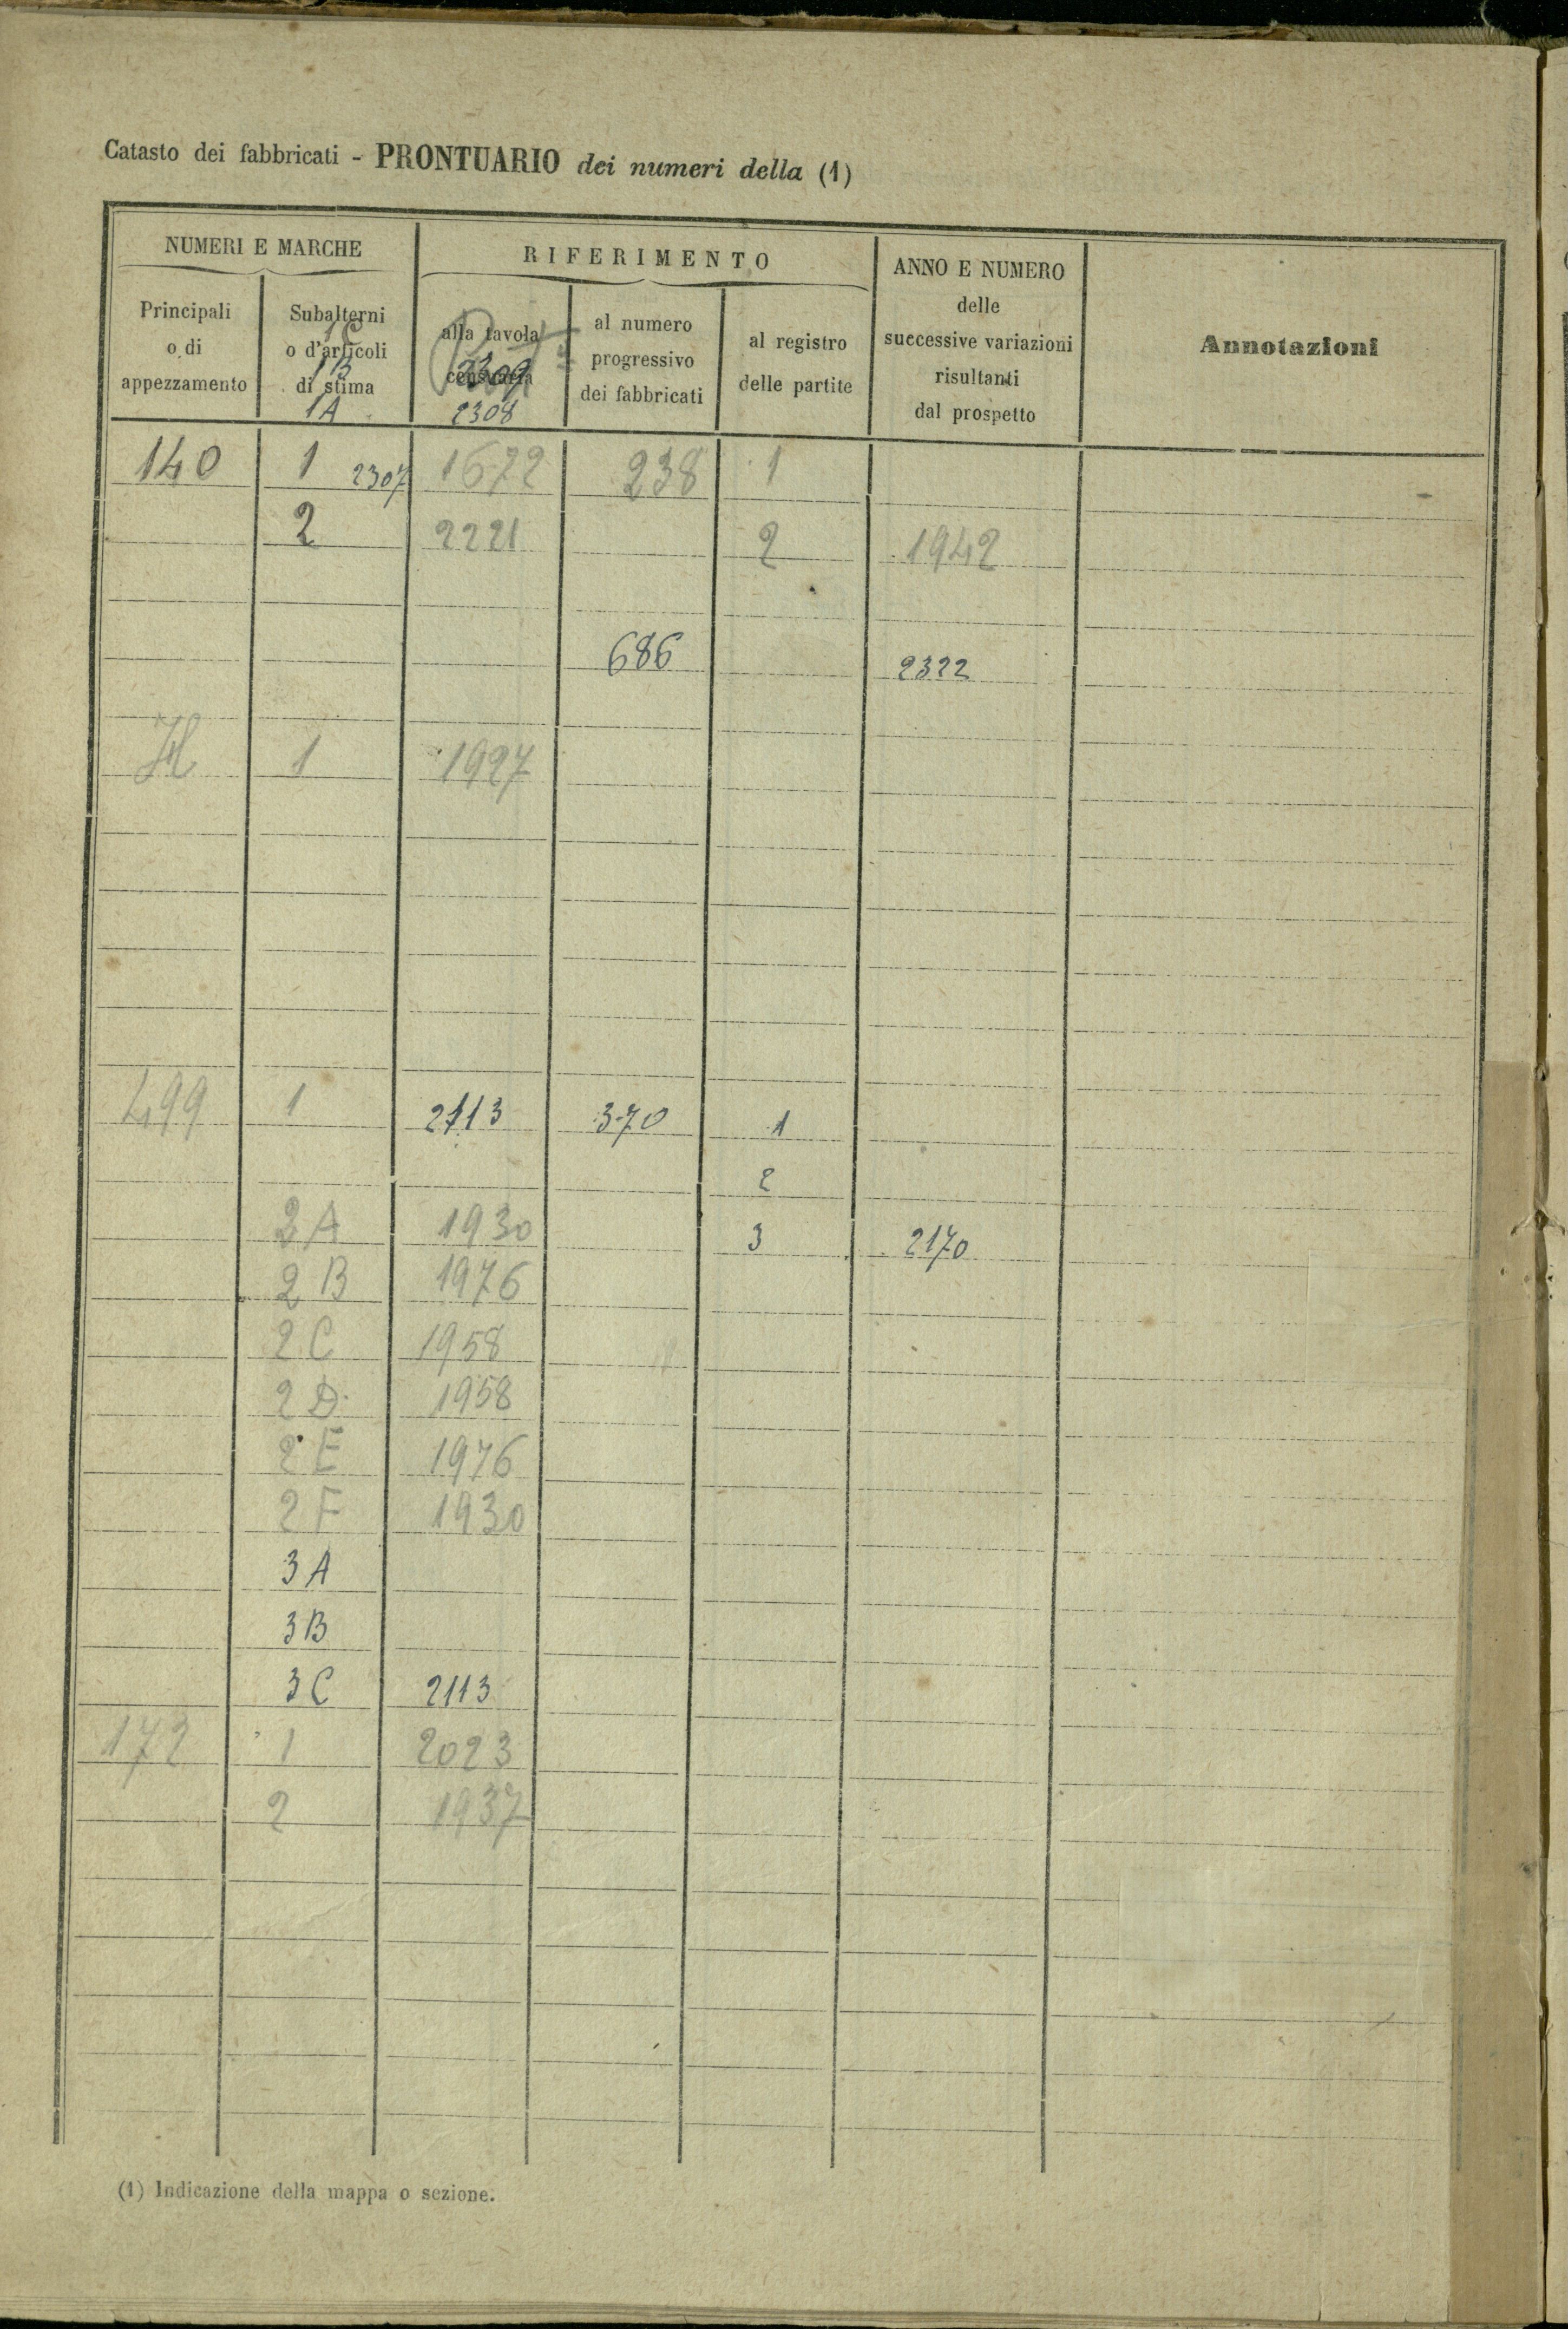 Catasto dei fabbricati - PRONTUARIO dei numeri della (1)
NUMERI E MARCHE
RIFERIMENTO
ANNO E NUMERO
delle
successive variazioni
risultanti
dal prospetto
Annotazioni
Principali
o di
appezzamento
Subalterni
o d'articoli
di stima
alla tavola
censuaria
al numero
progressivo
dei fabbricati
al registro
delle partite
1C
1B 2309
1A 2308
140 1 2307 1672 238 1
2 2221 2 1942
686 2322
1 1927
499 1 2113 370 1
2
2A 1930 3 2170
2B 1976
2C 1958
2D 1958
2E 1976
2F 1930
3A
3B
3C 2113
172 1 2023
2 1937
(1) Indicazione della mappa o sezione.